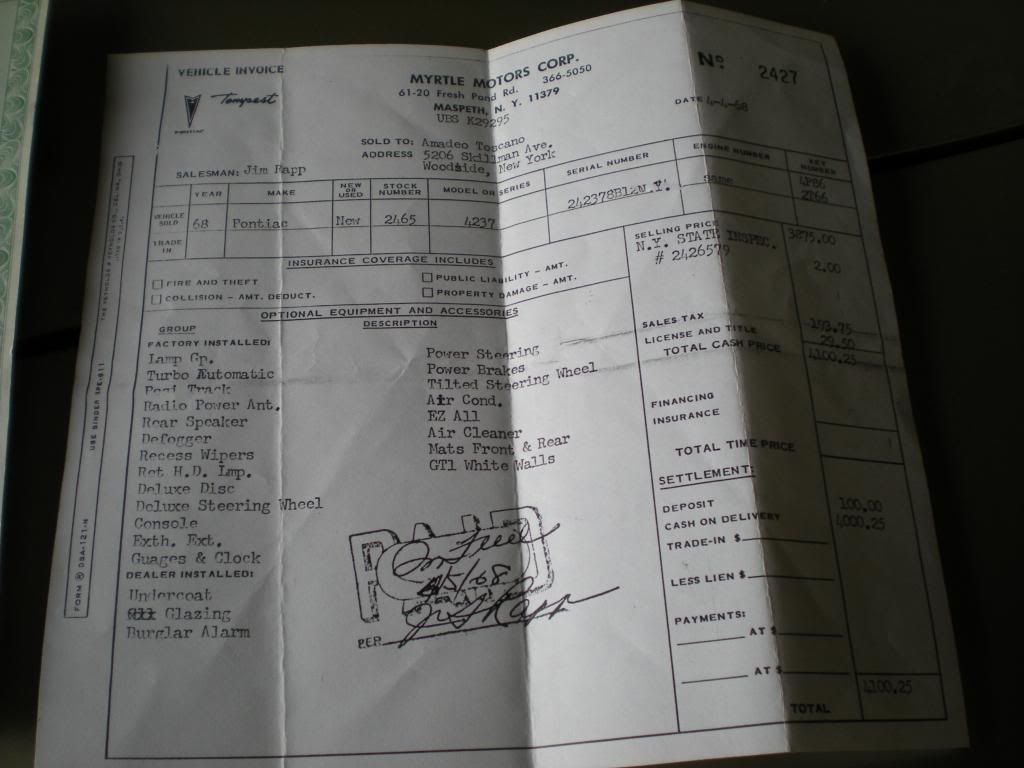 VEHICLE INVOICE
Tempest
PONTIAC
MYRTLE MOTORS CORP.
61-20 Fresh Pond Rd. 366-5050
MASPETH, N. Y. 11379
UBS K29295
Nº 2427
DATE 4-4-68
SOLD TO: Amadeo Toscano
ADDRESS 5206 Skillman Ave.
Woodside, New York
SALESMAN: Jim Rapp
YEAR MAKE NEW OR USED STOCK NUMBER MODEL OR SERIES SERIAL NUMBER ENGINE NUMBER KEY NUMBER
VEHICLE SOLD 68 Pontiac New 2465 4237 242378B12N.Y. same
TRADE IN
INSURANCE COVERAGE INCLUDES
FIRE AND THEFT
PUBLIC LIABILITY - AMT.
COLLISION - AMT. DEDUCT.
PROPERTY DAMAGE - AMT.
OPTIONAL EQUIPMENT AND ACCESSORIES
GROUP DESCRIPTION
FACTORY INSTALLED:
Lamp Gp.
Turbo Automatic
Posi Track
Radio Power Ant.
Rear Speaker
Defogger
Recess Wipers
Ret H.D. Imp.
Deluxe Disc
Deluxe Steering Wheel
Console
Exth. Ext.
Guages & Clock
DEALER INSTALLED:
Undercoat
Glazing
Burglar Alarm
Power Steering
Power Brakes
Tilted Steering Wheel
Air Cond.
EZ All
Air Cleaner
Mats Front & Rear
GT1 White Walls
PAID
In Full
4/5/68
PER J. Rapp
SELLING PRICE 3875.00
N.Y. STATE INSPEC. 2.00
# 2426579
SALES TAX 193.75
LICENSE AND TITLE 29.50
TOTAL CASH PRICE 4100.25
FINANCING
INSURANCE
TOTAL TIME PRICE
SETTLEMENT:
DEPOSIT 100.00
CASH ON DELIVERY 4000.25
TRADE-IN $
LESS LIEN $
PAYMENTS:
AT $
AT $
TOTAL 4100.25
FORM ® DSA-121-N
USE BINDER SPE-611